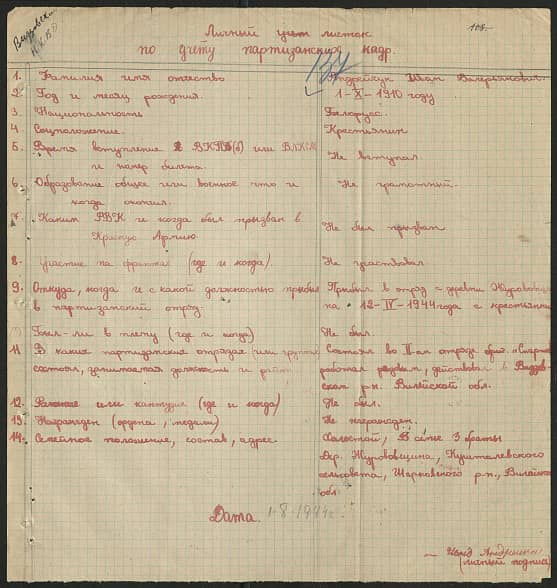 108.
Личный учёт листок
по учету партизанских кадр.
1. Фамилия имя отчество Андрейчук Иван Валерьянович.
2. Год и месяц рождения. 1-X-1910 году
3. Национальность Белорус.
4. Соцположение. Крестьянин
5. Время вступление в ВКПб(б) или ВЛКСМ
и номер билета. Не вступал.
6. Образование общее или военное что и Не грамотный.
когда окончил.
7. Каким РВК и когда был призван в
Красную Армию Не был призван
8. участие на фронтах (где и когда). Не участвовал
9. Откуда, когда и с какой должностью прибыл Прибыл в отряд с деревни
в партизанский отряд. на 12-IV-1944 года с крестьянин
Был-ли в плену (где и когда) Не был.
11 В каких партизанских отрядах или группах Состоял во II-ом отряде бриг.
состоял, занимаемая должность и работал рядвым, действовал в
р-н. Вилейской обл.
12. Ранение или кантузия (где и когда) Не был.
13. Награжден (ордена, медали) Не награжден.
14. Семейное положение, состав, адрес Холостой, В семье 3 браты
Дер. Журовщина,
сельсовета, Шарковского р-н.,
обл
Дата. 1-8-1944г.
(личный подпись)